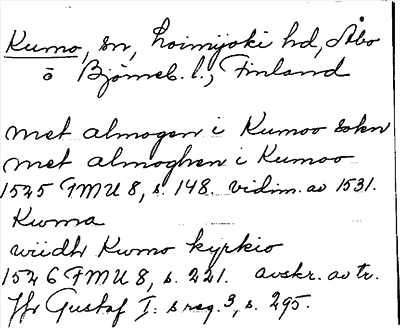 Kumo, sn, Loimijoki hd, Åbo
o Björneb. l., Finland
met almogen i Kumoo sokn
met almoghen i Kumoo
1545 FMU 8, s. 148. vidim. av 1531.
Kwma
widh Kwmo kyrkio
1546 FMU 8, s. 221. avskr. av tr.
Hr Gustaf I: s reg. 3, s. 295.